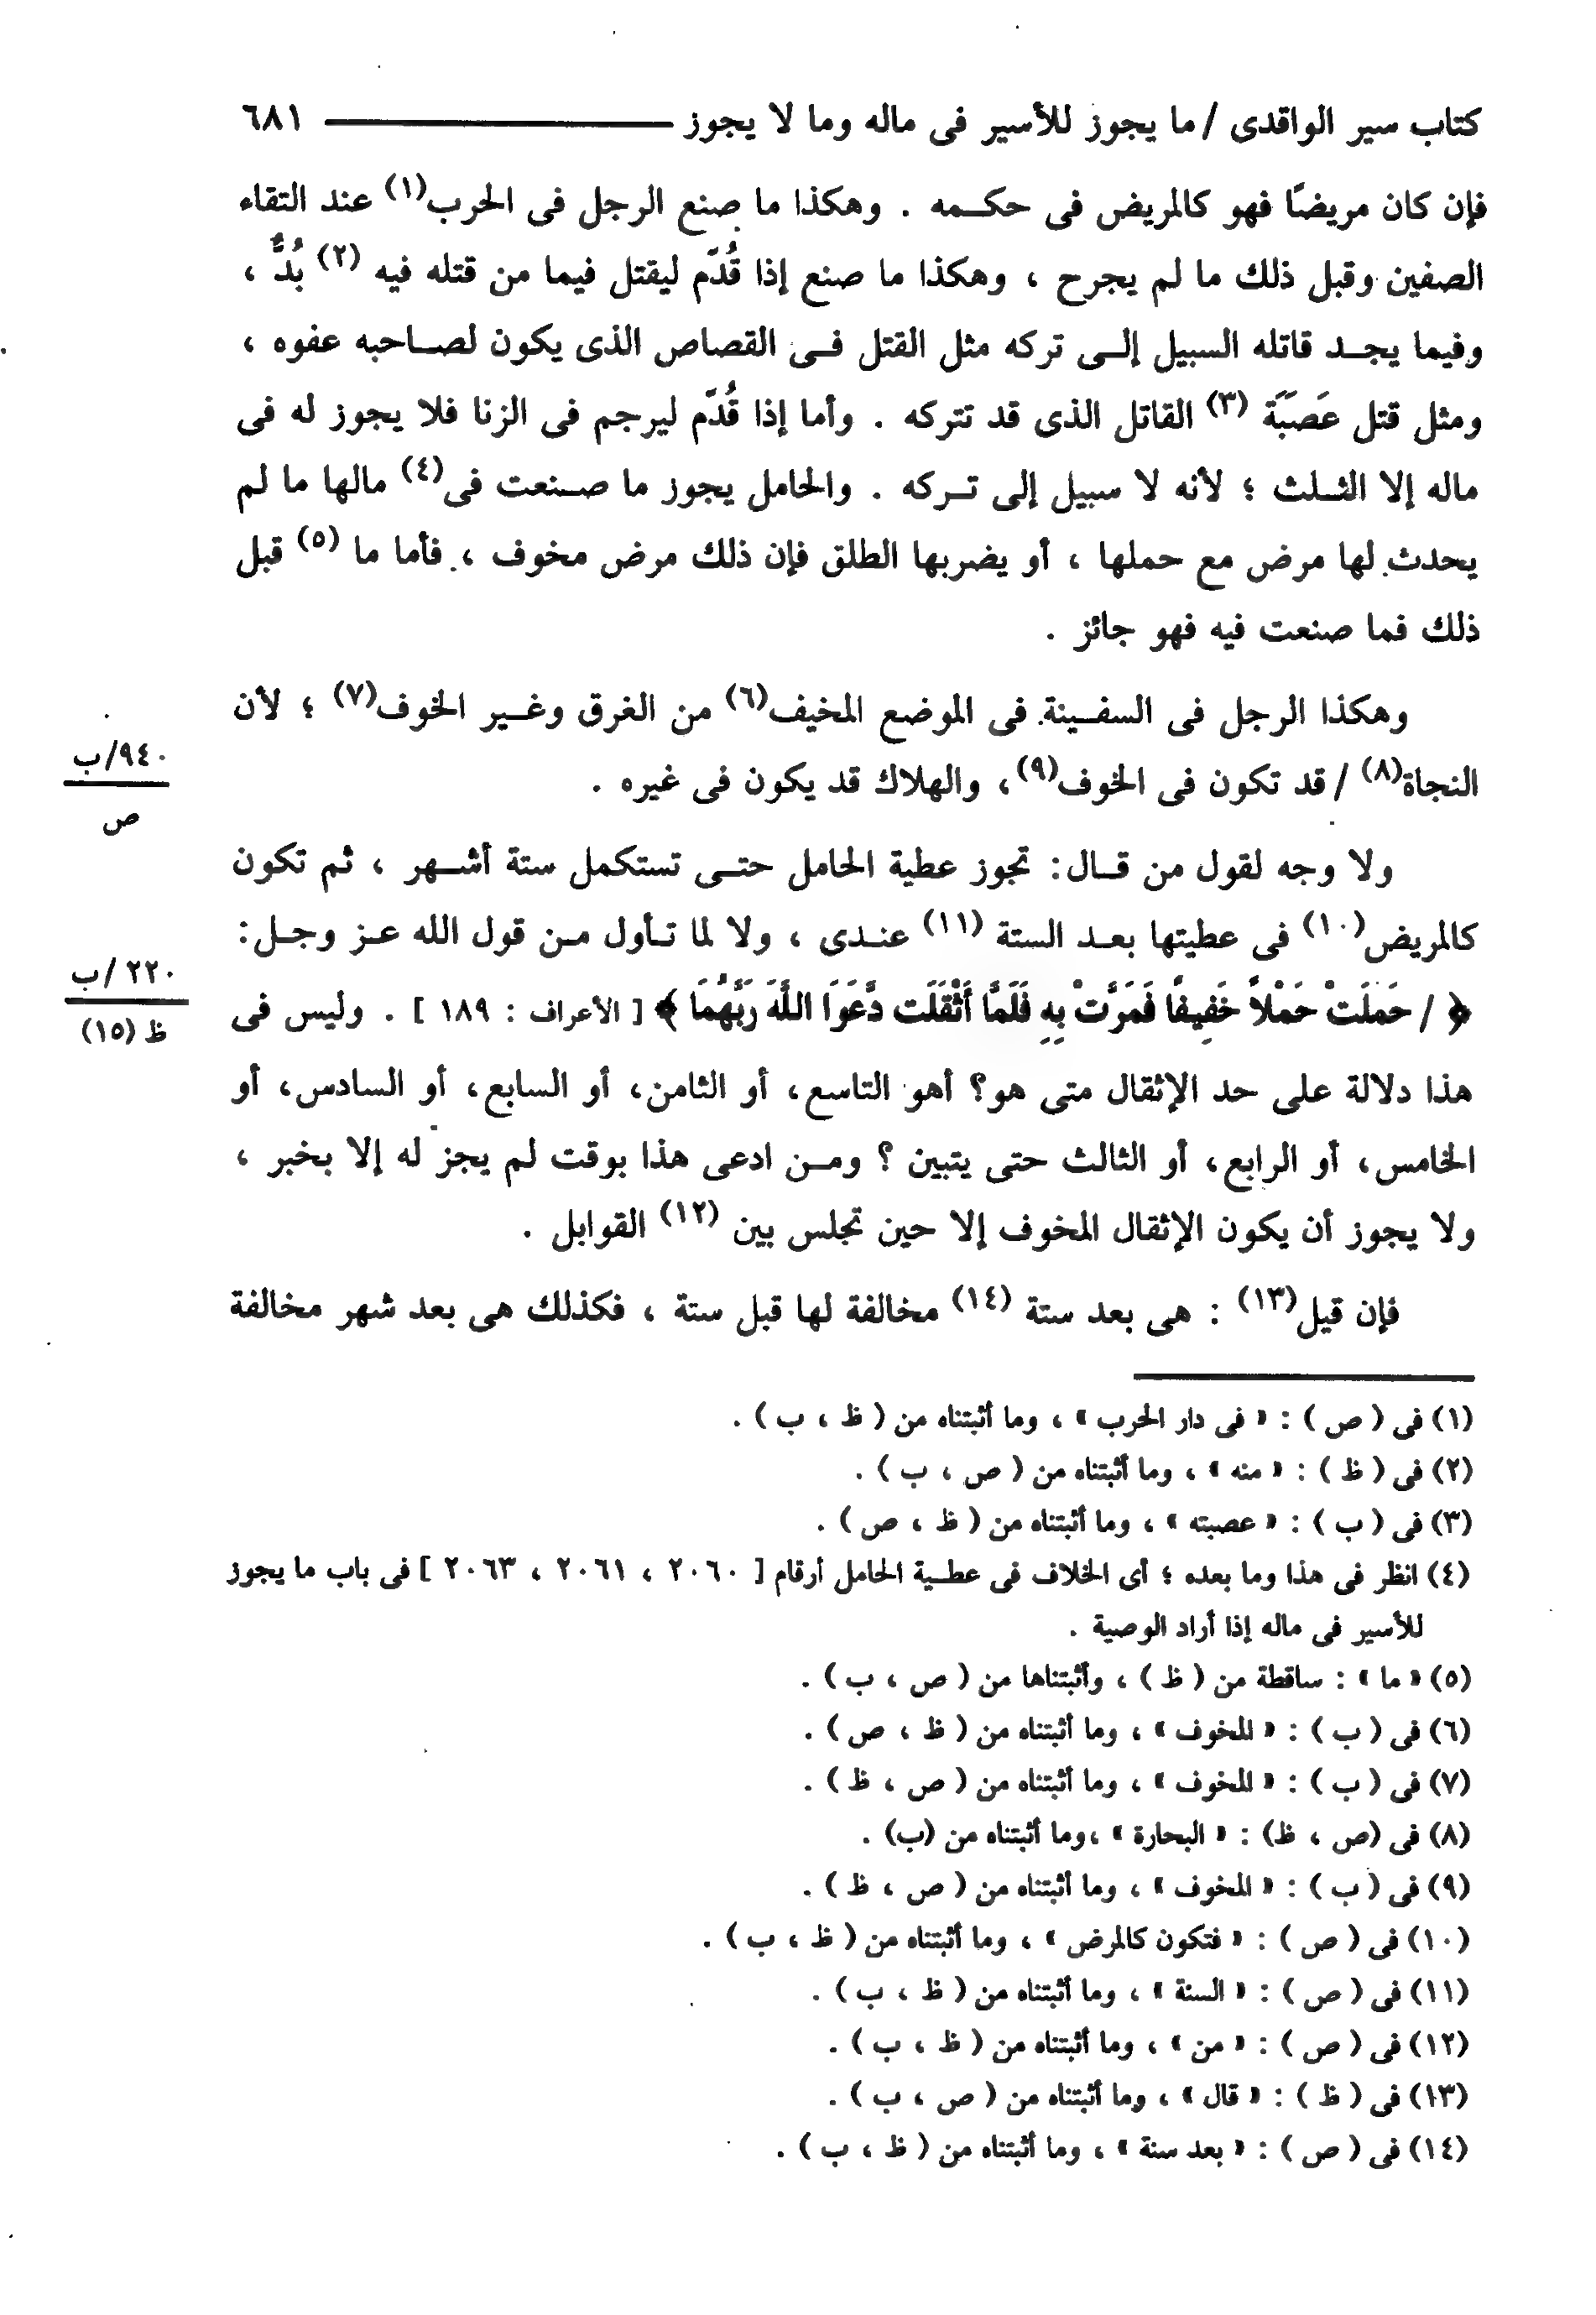 كتاب سير الواقدى / ما يجوز للأسير فى ماله وما لا يجوز ٦٨١
فإن كان مريضًا فهو كالمريض فى حكمه . وهكذا ما صنع الرجل فى الحرب(١) عند التقاء
الصفين وقبل ذلك ما لم يجرح ، وهكذا ما صنع إذا قُدِّم ليقتل فيما من قتله فيه (٢) بُدٌّ ،
وفيما يجد قاتله السبيل إلى تركه مثل القتل فى القصاص الذى يكون لصاحبه عفوه ،
ومثل قتل عَصَبَة (٣) القاتل الذى قد تتركه . وأما إذا قُدِّم ليرجم فى الزنا فلا يجوز له فى
ماله إلا الثلث ؛ لأنه لا سبيل إلى تركه . والحامل يجوز ما صنعت فى(٤) مالها ما لم
يحدث لها مرض مع حملها ، أو يضربها الطلق فإن ذلك مرض مخوف ، فأما ما (٥) قبل
ذلك فما صنعت فيه فهو جائز .
وهكذا الرجل فى السفينة فى الموضع المخيف(٦) من الغرق وغير الخوف(٧) ؛ لأن
النجاة(٨) / قد تكون فى الخوف(٩) ، والهلاك قد يكون فى غيره .
٩٤٠/ب
ص
ولا وجه لقول من قال: تجوز عطية الحامل حتى تستكمل ستة أشهر ، ثم تكون
كالمريض(١٠) فى عطيتها بعد الستة (١١) عندى ، ولا لما تأول من قول الله عز وجل:
﴿ / حَمَلَتْ حَمْلاً خَفِيفًا فَمَرَّتْ بِهِ فَلَمَّا أَثْقَلَت دَّعَوَا اللَّهَ رَبَّهُمَا ﴾ [ الأعراف : ١٨٩ ] . وليس فى
٢٢٠ /ب
ظ (١٥)
هذا دلالة على حد الإثقال متى هو؟ أهو التاسع، أو الثامن، أو السابع، أو السادس، أو
الخامس، أو الرابع، أو الثالث حتى يتبين ؟ ومن ادعى هذا بوقت لم يجز له إلا بخبر ،
ولا يجوز أن يكون الإثقال المخوف إلا حين تجلس بين (١٢) القوابل .
فإن قيل(١٣) : هى بعد ستة (١٤) مخالفة لها قبل ستة ، فكذلك هى بعد شهر مخالفة
(١) فى ( ص ) : « فى دار الحرب » ، وما أثبتناه من ( ظ ، ب ) .
(٢) فى ( ظ ) : « منه » ، وما أثبتناه من ( ص ، ب ) .
(٣) فى ( ب ) : « عصبته » ، وما أثبتناه من ( ظ ، ص ) .
(٤) انظر فى هذا وما بعده ؛ أى الخلاف فى عطية الحامل أرقام [ ٢٠٦٠ ، ٢٠٦١ ، ٢٠٦٣ ] فى باب ما يجوز
للأسير فى ماله إذا أراد الوصية .
(٥) « ما » : ساقطة من ( ظ ) ، وأثبتناها من ( ص ، ب ) .
(٦) فى ( ب ) : « المخوف » ، وما أثبتناه من ( ظ ، ص ) .
(٧) فى ( ب ) : « المخوف » ، وما أثبتناه من ( ص ، ظ ) .
(٨) فى (ص ، ظ) : « البحارة » ،وما أثبتناه من (ب) .
(٩) فى ( ب ) : « المخوف » ، وما أثبتناه من ( ص ، ظ ) .
(١٠) فى ( ص ) : « فتكون كالمرض » ، وما أثبتناه من ( ظ ، ب ) .
(١١) فى ( ص ) : « السنة » ، وما أثبتناه من ( ظ ، ب ) .
(١٢) فى ( ص ) : « من » ، وما أثبتناه من ( ظ ، ب ) .
(١٣) فى ( ظ ) : « قال » ، وما أثبتناه من ( ص ، ب ) .
(١٤) فى ( ص ) : « بعد سنة » ، وما أثبتناه من ( ظ ، ب ) .